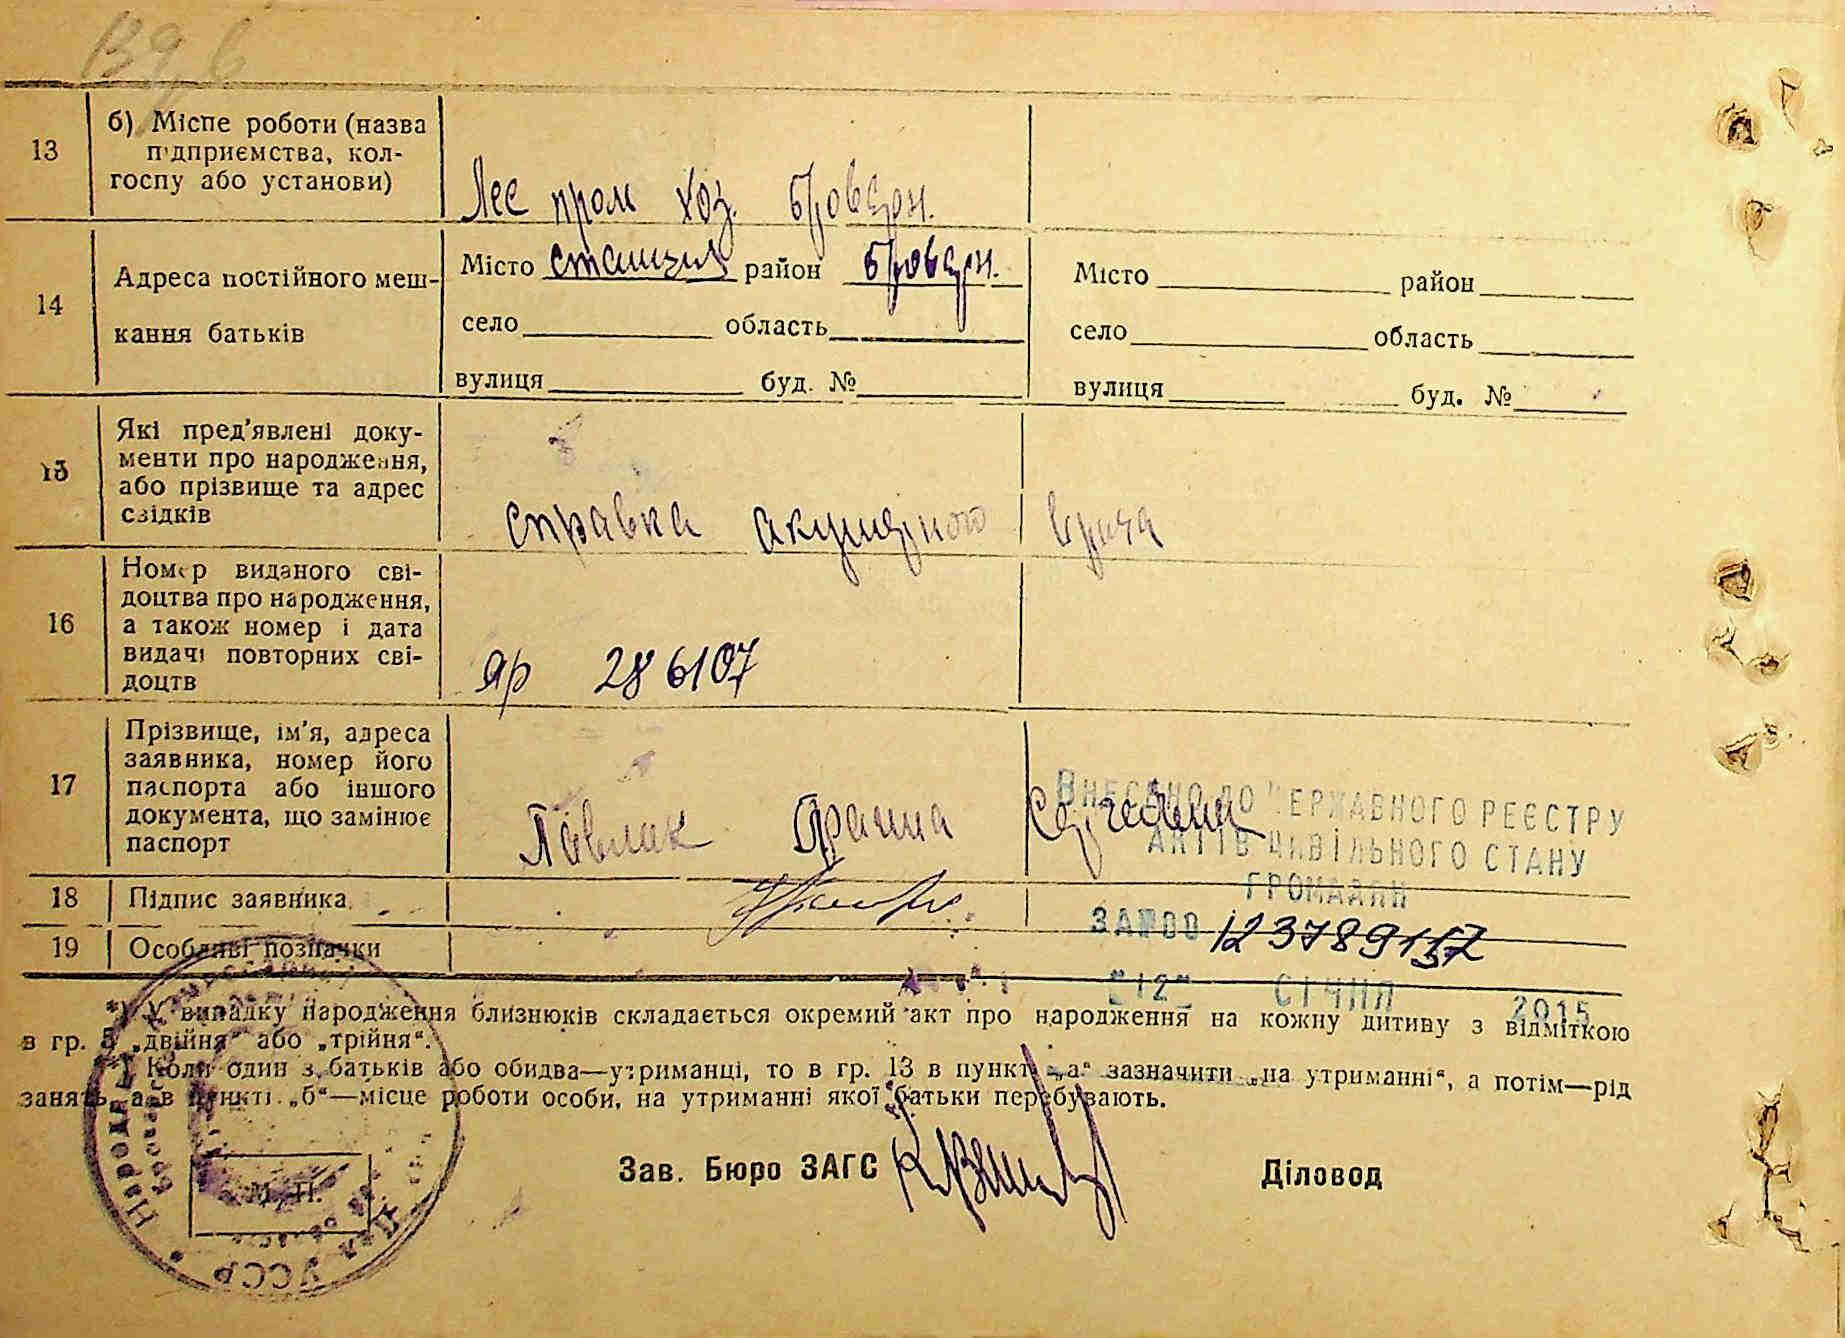 13
б) Місце роботи (назва
підприємства, кол-
госпу або установи)
Лес пром хоз.
14
Адреса постійного меш-
кання батьків
Місто станция район
село область
вулиця буд. №
Місто район
село область
вулиця буд. №
15
Які пред'явлені доку-
менти про народження,
або прізвище та адрес
свідків
справка акушерного врача
16
Номер виданого сві-
доцтва про народження,
а також номер і дата
видачі повторних сві-
доцтв
яр 286107
17
Прізвище, ім'я, адреса
заявника, номер його
паспорта або іншого
документа, що замінює
паспорт
Павлик
ВНЕСЕНО ДО ДЕРЖАВНОГО РЕЄСТРУ
АКТІВ ЦИВІЛЬНОГО СТАНУ
ГРОМАДЯН
ЗА №00 123789157
"12" СІЧНЯ 2015
18
Підпис заявника
19
Особливі позначки
*) У випадку народження близнюків складається окремий акт про народження на кожну дитину з відміткою
в гр. 5 „двійня“ або „трійня“.
*) Коли один з батьків або обидва—утриманці, то в гр. 13 в пункті „а“ зазначити „на утриманні“, а потім—рід
занять, а в пункті „б“—місце роботи особи, на утриманні якої батьки перебувають.
Зав. Бюро ЗАГС
Діловод
М. П.
УССР